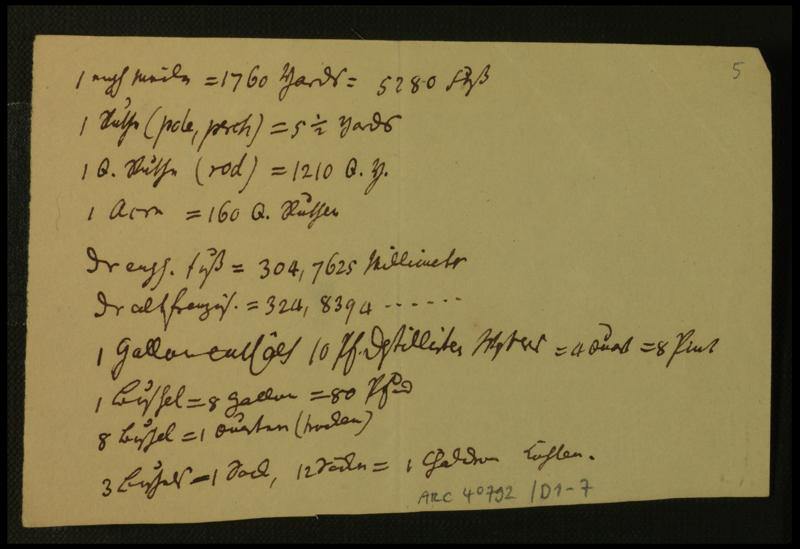 5
1 engl Meile = 1760 Yards = 5280 Fuß
1 Ruthe (pole, perch) = 5 1/2 Yards
1 Q. Ruthe (rod) = 1210 Q. Y.
1 Acre = 160 Q. Ruthen
Der engl. Fuß = 304,7625 Millimeter
Der altfranzös. = 324,8394 ......
1 Gallon enthält 10 Pf. destillirten Wassers = 4 Quart = 8 Pint
1 Bushel = 8 Gallon = 80 Pfund
8 Bushel = 1 Quarter (trocken)
3 Bushels = 1 Sack, 12 Säcke = 1 Chaldron Kohlen.
ARC 40792 / D1-7